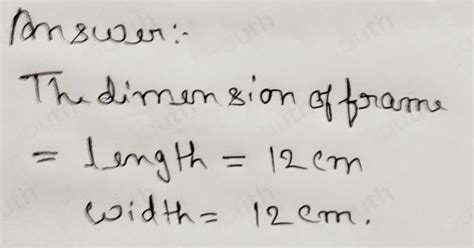 Answer:-
The dimension of frame
= length = 12cm
width = 12cm.